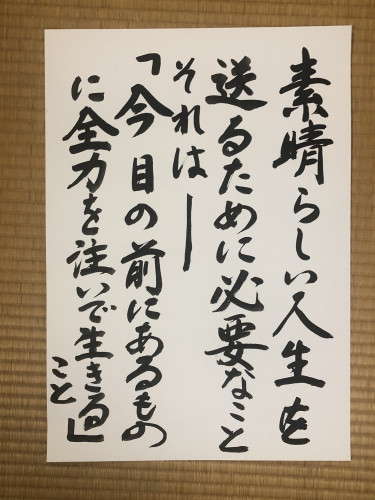 素晴らしい人生を
送るために必要なこと
それは—
「今目の前にあるもの
に全力を注いで生きる」
こと